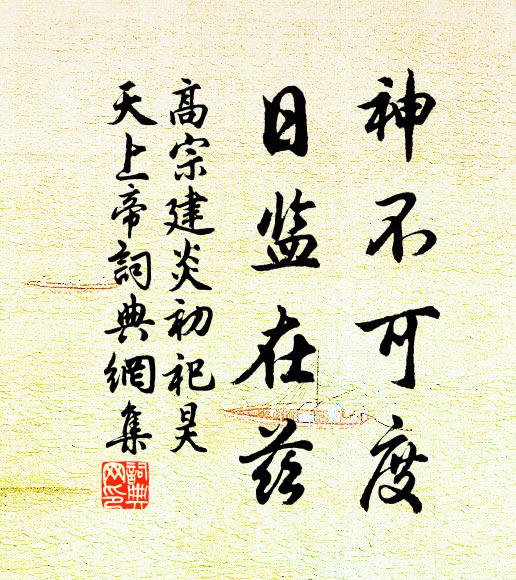 神不可度
日监在兹
高宗建炎初祀昊
天上帝詞典網集
詞典网印